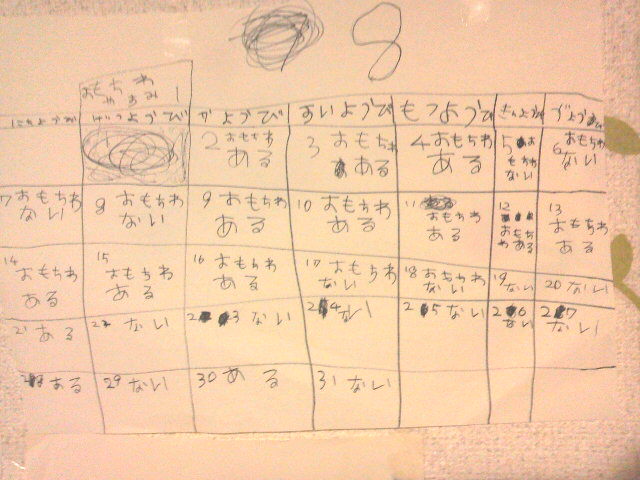 8
おもちゃ
やすみ 1
にちようび げつようび かようび すいようび もつようび きんようび どようび
2 おもちゃ ある
3 おもちゃ ある
4 おもちゃ ある
5 おもちゃ ない
6 おもちゃ ない
7 おもちゃ ない
8 おもちゃ ない
9 おもちゃ ある
10 おもちゃ ある
11 おもちゃ ある
12 おもちゃ ある
13 おもちゃ ある
14 おもちゃ ある
15 おもちゃ ある
16 おもちゃ ある
17 おもちゃ ない
18 おもちゃ ない
19 ない
20 ない
21 ある
22 ない
23 ない
24 ない
25 ない
26 ない
27 ない
28 ある
29 ない
30 ある
31 ない